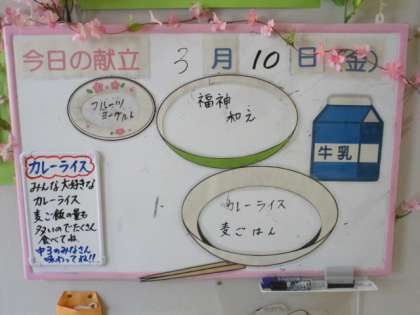 今日の献立 3月10日(金)
フルーツ
ヨーグルト
福神
和え
牛乳
カレーライス
麦ごはん
カレーライス
みんな大好きな
カレーライス
麦ご飯の量も
多いのでたくさん
食べてね
中3のみなさん
味わってね!!